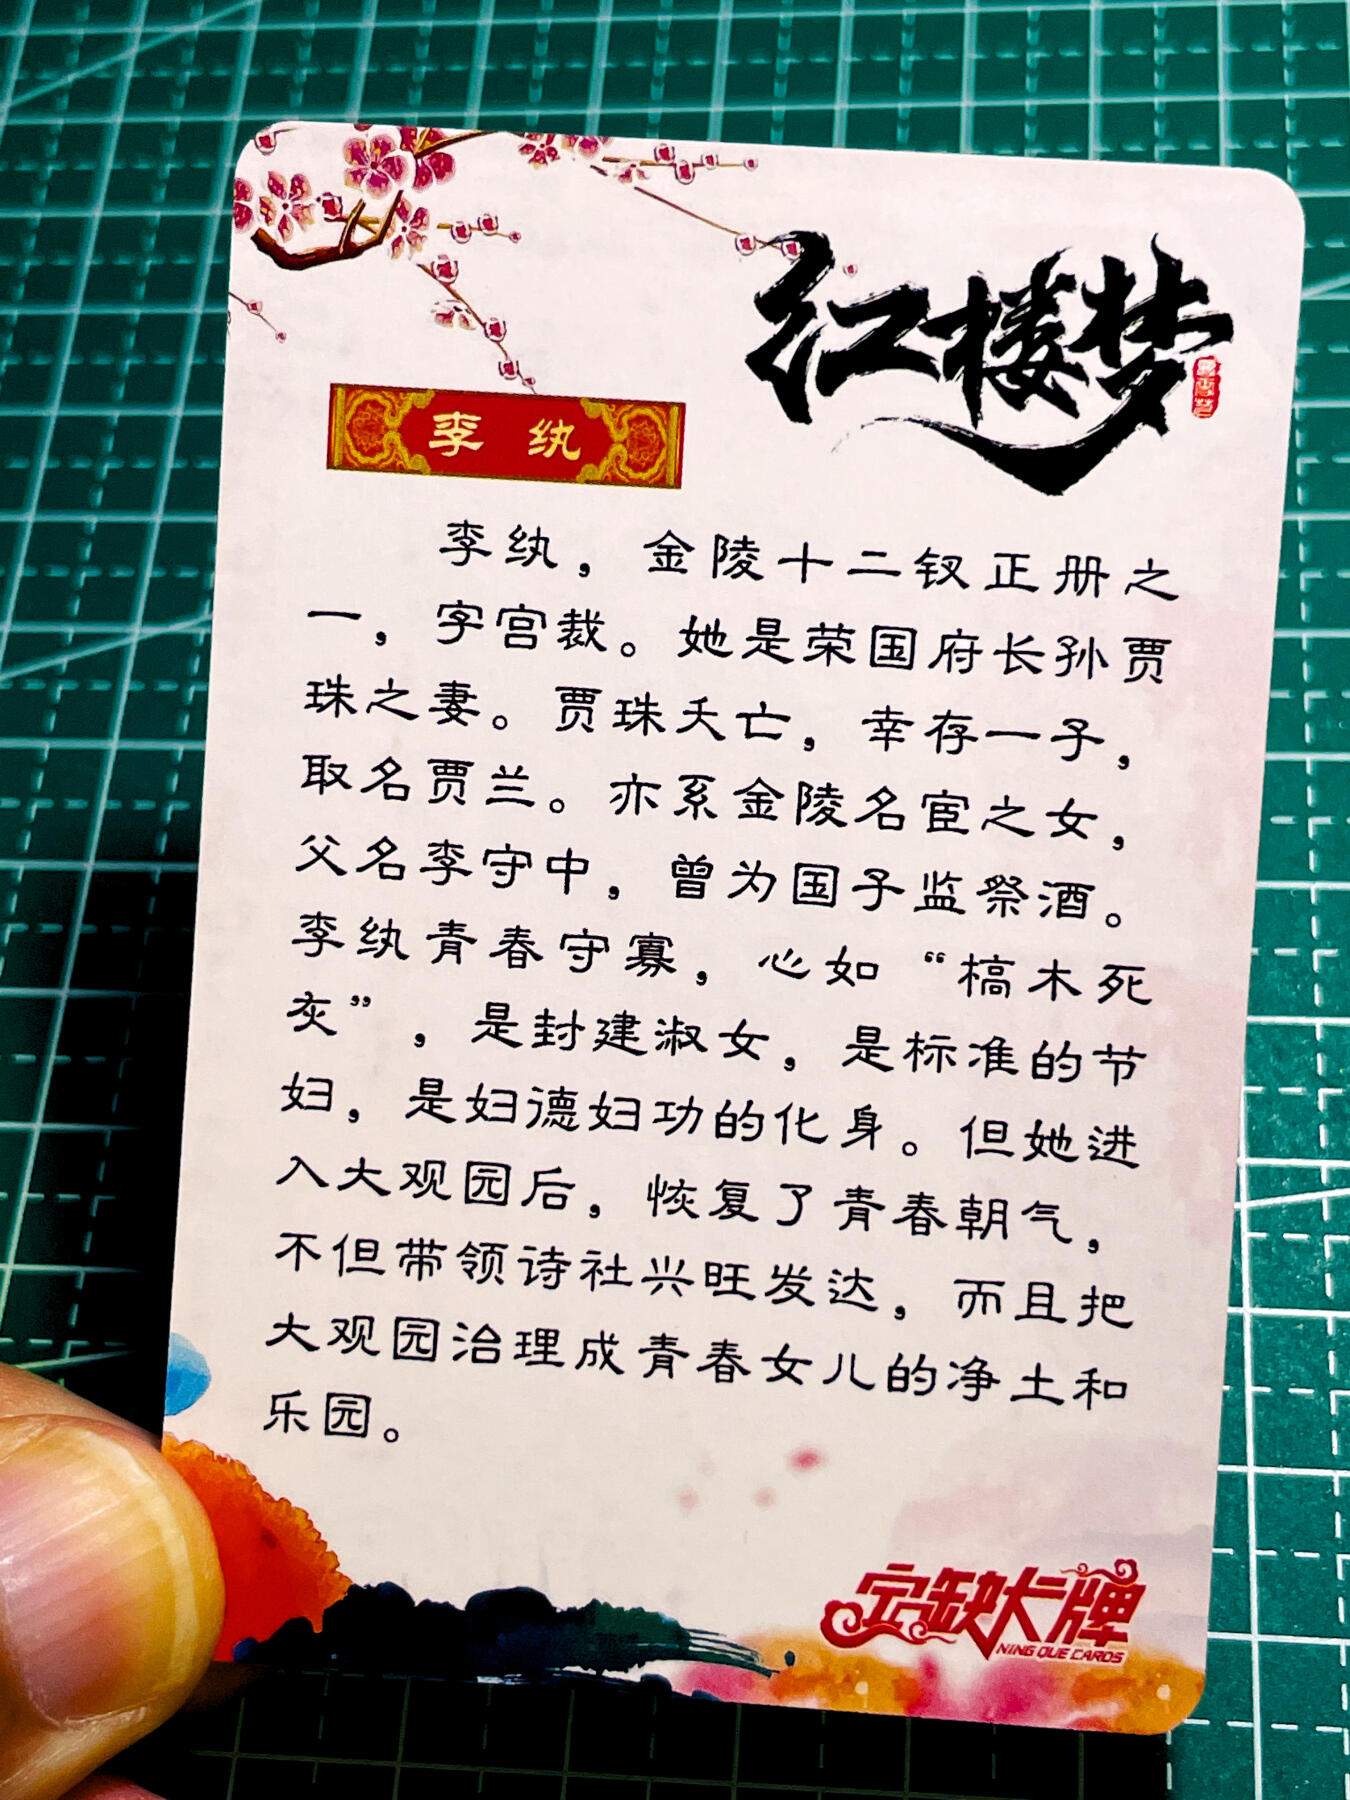 红楼梦
李纨
李纨，金陵十二钗正册之
一，字宫裁。她是荣国府长孙贾
珠之妻。贾珠夭亡，幸存一子，
取名贾兰。亦系金陵名宦之女，
父名李守中，曾为国子监祭酒。
李纨青春守寡，心如“槁木死
灰”，是封建淑女，是标准的节
妇，是妇德妇功的化身。但她进
入大观园后，恢复了青春朝气，
不但带领诗社兴旺发达，而且把
大观园治理成青春女儿的净土和
乐园。
宁缺大牌
NING QUE CARDS